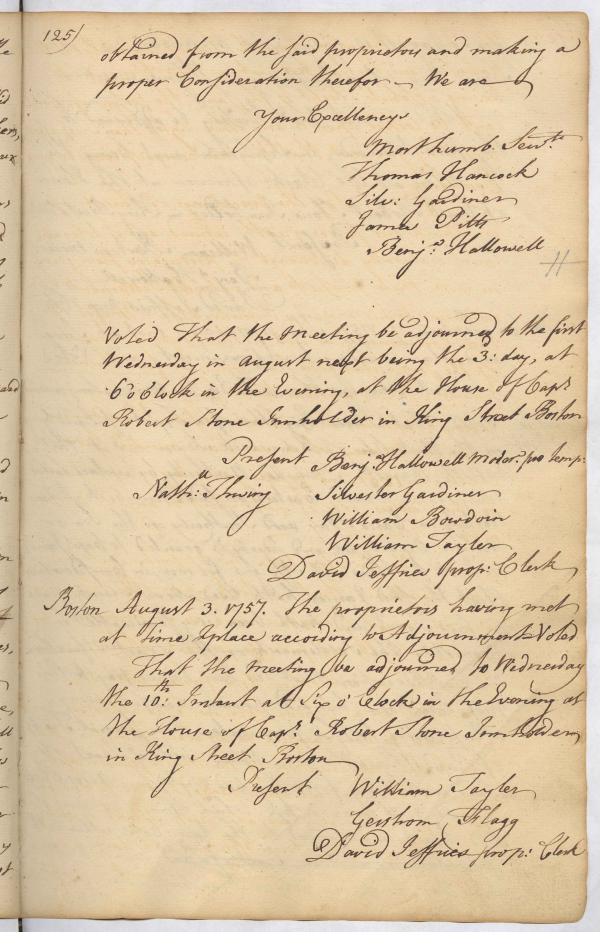 125)
obtained from the said proprietors and making a
proper Consideration therefor — We are
Your Excellencys
Most humb. Serv.ts
Thomas Hancock
Silv: Gardiner
James Pitts
Benj.a Hallowell
Voted That the Meeting be adjourned to the first
Wednesday in August next being the 3: day, at
6 o'Clock in the Evening, at the House of Cap.t
Robert Stone Innholder in King Street Boston
Present Benj.a Hallowell Moder.r pro temp:
Nath:ll Thwing Silvester Gardiner
William Bowdoin
William Tayler
David Jeffries prop.s Clerk
Boston August 3. 1757. The proprietors having met
at time & place according to Adjournment Voted
That the meeting be adjourned to Wednesday
the 10:th Instant at Six o' Clock in the Evening at
the House of Cap.t Robert Stone Innholder,
in King Street Boston
Present William Tayler
Gershom Flagg
David Jeffries prop.s Clerk